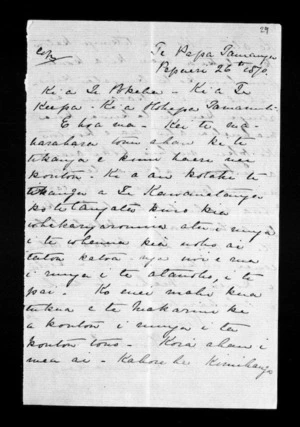 29
Te Papa Tauranga
Pepuere 26th 1870.
Ki a Te Pokeha - Ki a Te
Keepa - Ki a Hohepa Tamamutu.
E hoa ma - Kei te ma-
harahara tonu ahau ki te
tikanga e kimi haere nei
koutou - Ki a au kotahi te
tikanga a Te Kawanatanga
ko te tangata kino kia
whakangaromia atu i runga
i te whenua kia noho ai
tatou katoa - nga iwi e rua
i runga i te ataahu, i te
pai - Ko enei mahi kua
tukua e te Makarini ki
a koutou i runga i ta
koutou tono - Koia ahau i
mea ai - Kahore he Kimihanga